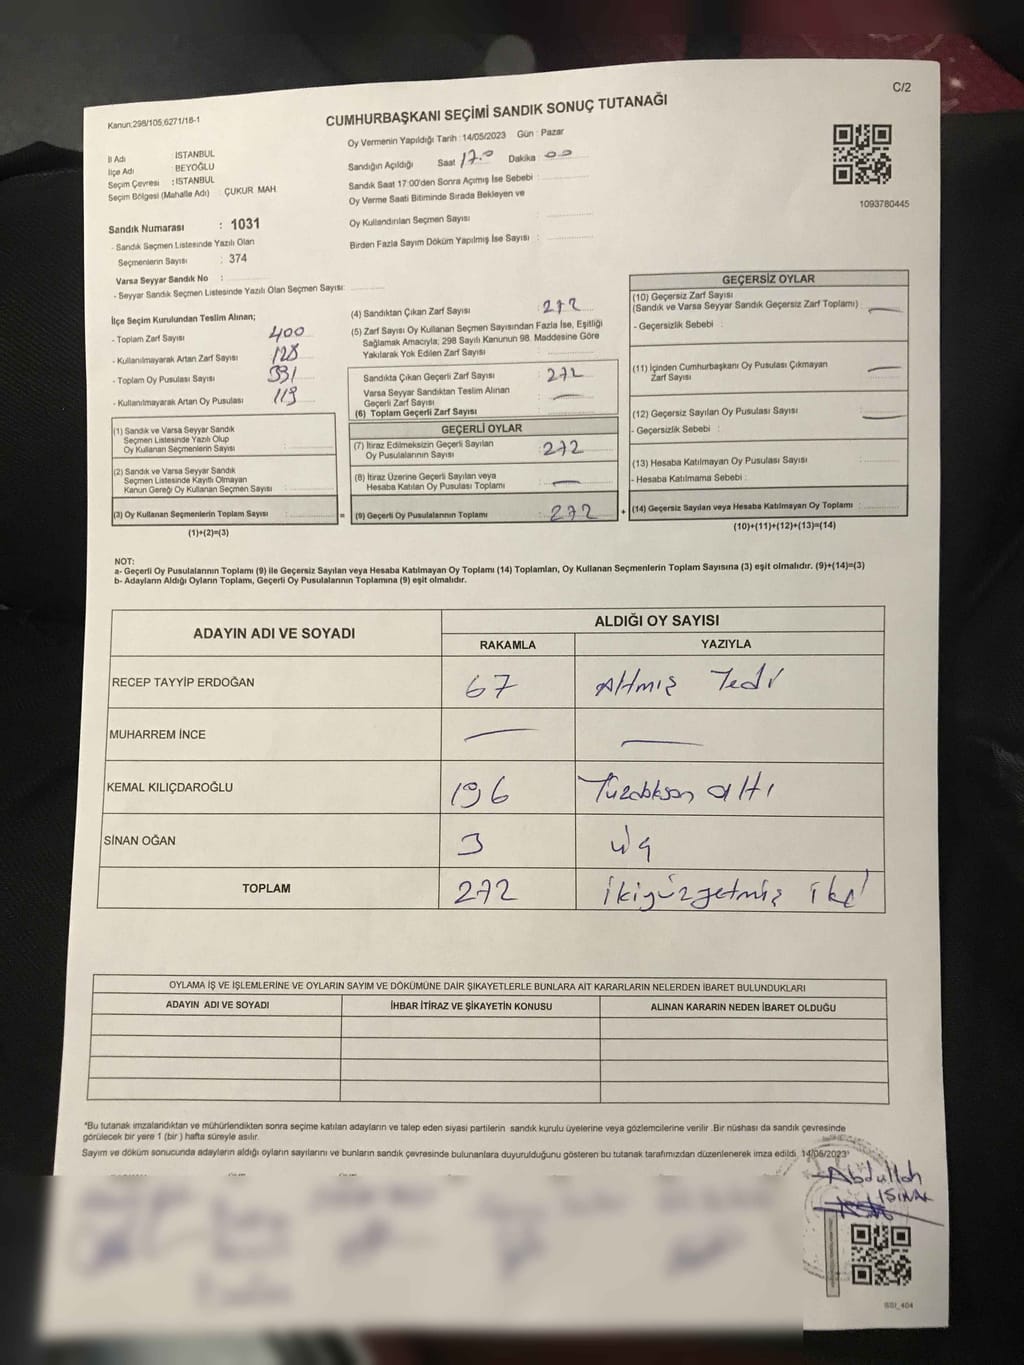 C/2
Kanun:298/105,6271/18-1
CUMHURBAŞKANI SEÇİMİ SANDIK SONUÇ TUTANAĞI
Oy Vermenin Yapıldığı Tarih :14/05/2023 Gün : Pazar
İl Adı : İSTANBUL
İlçe Adı : BEYOĞLU
Seçim Çevresi : İSTANBUL
Seçim Bölgesi (Mahalle Adı) : ÇUKUR MAH.
Sandığın Açıldığı Saat 17.0 Dakika 00
Sandık Saat 17:00'den Sonra Açımış İse Sebebi :
Oy Verme Saati Bitiminde Sırada Bekleyen ve
Oy Kullandırılan Seçmen Sayısı :
Birden Fazla Sayım Döküm Yapılmış İse Sayısı :
1093780445
Sandık Numarası : 1031
- Sandık Seçmen Listesinde Yazılı Olan
Seçmenlerin Sayısı : 374
Varsa Seyyar Sandık No :
- Seyyar Sandık Seçmen Listesinde Yazılı Olan Seçmen Sayısı:
İlçe Seçim Kurulundan Teslim Alınan;
- Toplam Zarf Sayısı : 400
- Kullanılmayarak Artan Zarf Sayısı : 128
- Toplam Oy Pusulası Sayısı : 391
- Kullanılmayarak Artan Oy Pusulası : 119
(1) Sandık ve Varsa Seyyar Sandık
Seçmen Listesinde Yazılı Olup
Oy Kullanan Seçmenlerin Sayısı :
(2) Sandık ve Varsa Seyyar Sandık
Seçmen Listesinde Kayıtlı Olmayan
Kanun Gereği Oy Kullanan Seçmen Sayısı :
(3) Oy Kullanan Seçmenlerin Toplam Sayısı : =
(1)+(2)=(3)
(4) Sandıktan Çıkan Zarf Sayısı : 272
(5) Zarf Sayısı Oy Kullanan Seçmen Sayısından Fazla İse, Eşitliği
Sağlamak Amacıyla, 298 Sayılı Kanunun 98. Maddesine Göre
Yakılarak Yok Edilen Zarf Sayısı :
Sandıkta Çıkan Geçerli Zarf Sayısı : 272
Varsa Seyyar Sandıktan Teslim Alınan
Geçerli Zarf Sayısı : —
(6) Toplam Geçerli Zarf Sayısı :
GEÇERLİ OYLAR
(7) İtiraz Edilmeksizin Geçerli Sayılan
Oy Pusulalarının Sayısı : 272
(8) İtiraz Üzerine Geçerli Sayılan veya
Hesaba Katılan Oy Pusulası Toplamı : —
(9) Geçerli Oy Pusulalarının Toplamı : 272 +
GEÇERSİZ OYLAR
(10) Geçersiz Zarf Sayısı
(Sandık ve Varsa Seyyar Sandık Geçersiz Zarf Toplamı) : —
- Geçersizlik Sebebi :
(11) İçinden Cumhurbaşkanı Oy Pusulası Çıkmayan
Zarf Sayısı : —
(12) Geçersiz Sayılan Oy Pusulası Sayısı : —
- Geçersizlik Sebebi :
(13) Hesaba Katılmayan Oy Pusulası Sayısı :
- Hesaba Katılmama Sebebi :
(14) Geçersiz Sayılan veya Hesaba Katılmayan Oy Toplamı :
(10)+(11)+(12)+(13)=(14)
NOT:
a- Geçerli Oy Pusulalarının Toplamı (9) ile Geçersiz Sayılan veya Hesaba Katılmayan Oy Toplamı (14) Toplamları, Oy Kullanan Seçmenlerin Toplam Sayısına (3) eşit olmalıdır. (9)+(14)=(3)
b- Adayların Aldığı Oyların Toplamı, Geçerli Oy Pusulalarının Toplamına (9) eşit olmalıdır.
ADAYIN ADI VE SOYADI
ALDIĞI OY SAYISI
RAKAMLA YAZIYLA
RECEP TAYYİP ERDOĞAN 67 Altmış Yedi
MUHARREM İNCE — —
KEMAL KILIÇDAROĞLU 196 altı
SİNAN OĞAN 3 üç
TOPLAM 272 ikiyüzyetmiş iki
OYLAMA İŞ VE İŞLEMLERİNE VE OYLARIN SAYIM VE DÖKÜMÜNE DAİR ŞİKAYETLERLE BUNLARA AİT KARARLARIN NELERDEN İBARET BULUNDUKLARI
ADAYIN ADI VE SOYADI İHBAR İTİRAZ VE ŞİKAYETİN KONUSU ALINAN KARARIN NEDEN İBARET OLDUĞU
*Bu tutanak imzalandıktan ve mühürlendikten sonra seçime katılan adayların ve talep eden siyasi partilerin sandık kurulu üyelerine veya gözlemcilerine verilir .Bir nüshası da sandık çevresinde
görülecek bir yere 1 (bir ) hafta süreyle asılır.
Sayım ve döküm sonucunda adayların aldığı oyların sayılarını ve bunların sandık çevresinde bulunanlara duyurulduğunu gösteren bu tutanak tarafımızdan düzenlenerek imza edildi. 14/05/2023
Abdullah
IŞINAK